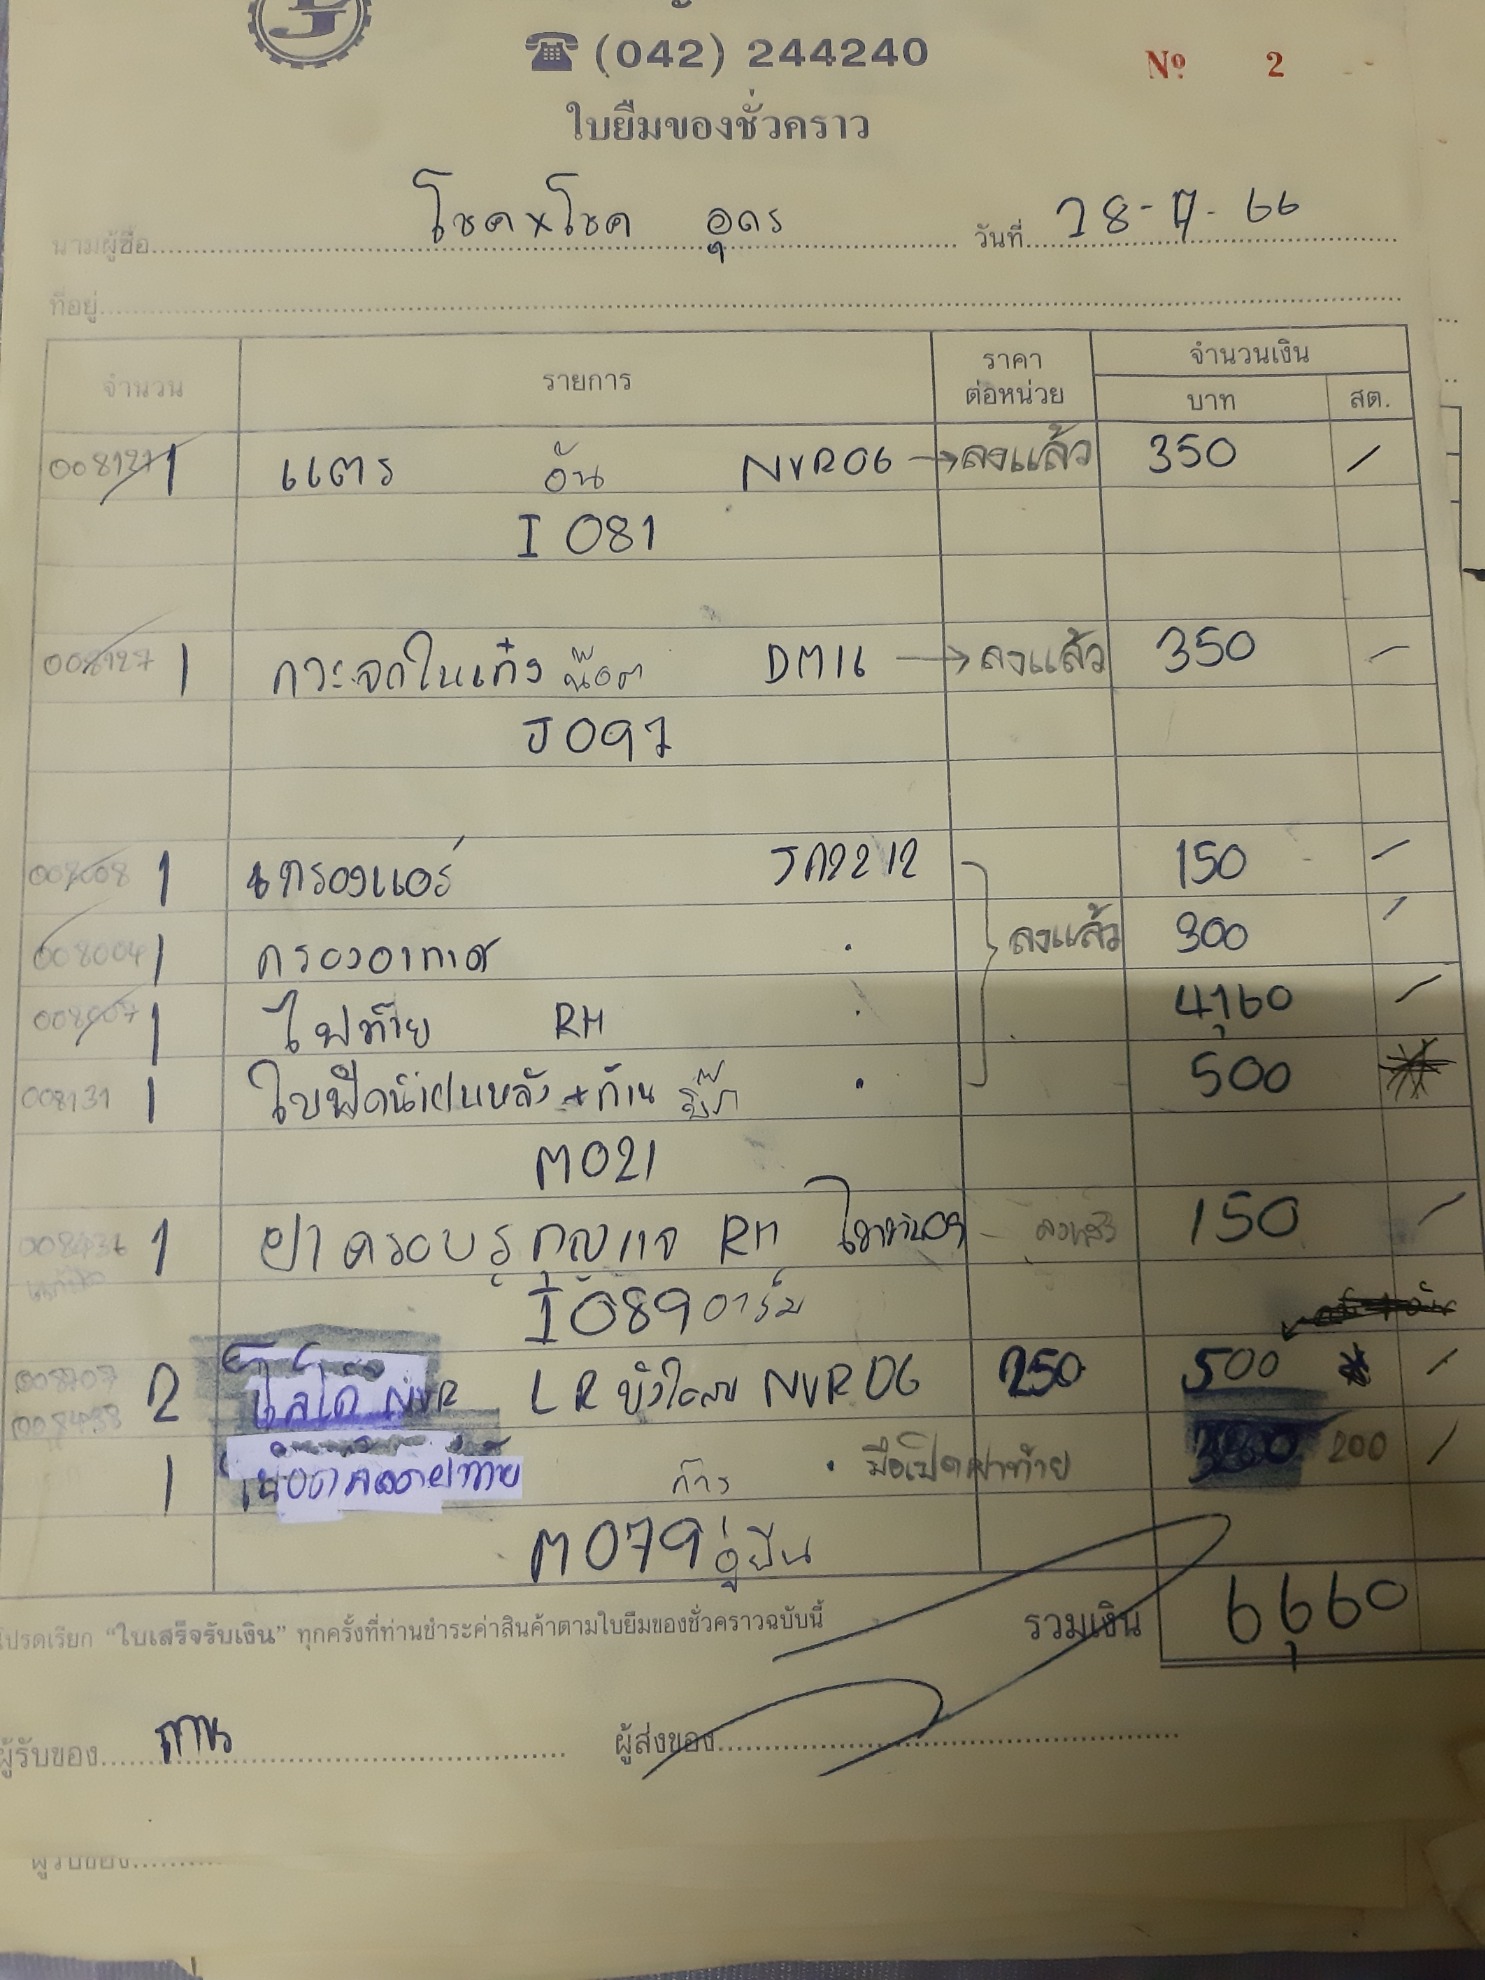 (042) 244240
Nº 2
ใบยืมของชั่วคราว
นามผู้ซื้อ โชค x โชค อุดร วันที่ 28-7-66
ที่อยู่
จำนวน รายการ ราคาต่อหน่วย จำนวนเงิน
บาท สต.
008127 1 แตร อ้น NVR06 → ลงแล้ว 350 -
I 081
008127 1 กระจกในเก๋ง น๊อต DM16 → ลงแล้ว 350 -
J097
008008 1 กรองแอร์ JA2212 150 -
008004 1 กรองอากาศ . ลงแล้ว 300 -
008007 1 ไฟท้าย RH . 4,160 -
008131 1 ใบปัดน้ำฝนหลัง + ก้าน . 500
M021
1 ฝาครอบรูกุญแจ RH ลงแล้ว 150 -
I 089 อาร์ม
2 โลโก้ NVR LR บังโคลน NVR06 250 500 -
1 ก๊าร . มือเปิดฝาท้าย 200 -
M079 อู่ยืน
โปรดเรียก "ใบเสร็จรับเงิน" ทุกครั้งที่ท่านชำระค่าสินค้าตามใบยืมของชั่วคราวฉบับนี้ รวมเงิน 6,660
ผู้รับของ ผู้ส่งของ
ผู้รับของ